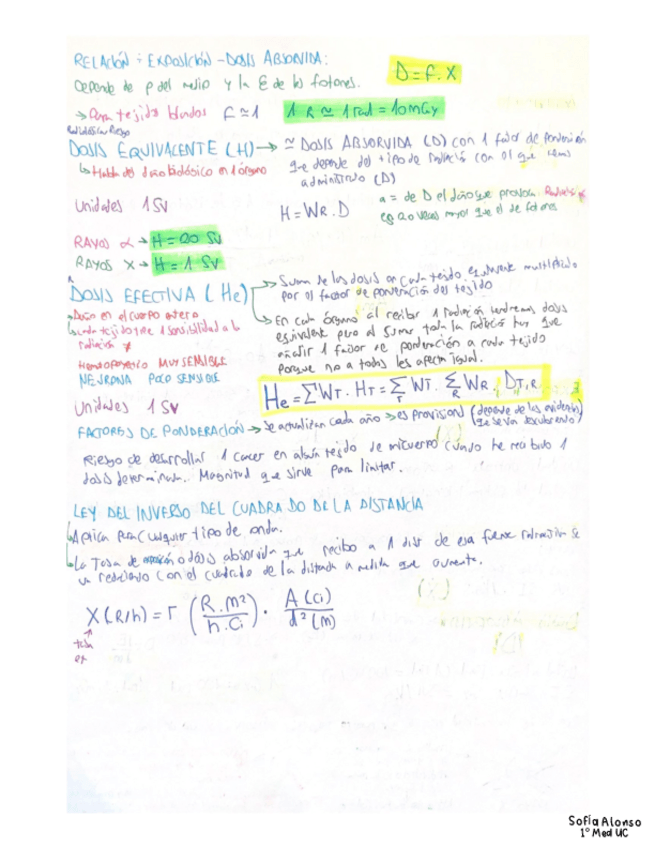 RELACIÓN: EXPOSICIÓN - DOSIS ABSORVIDA:
D = F. X
Depende de ρ del medio y la E de los fotones.
→ Para tejidos blandos F ≃ 1 1 R ≃ 1 rad = 10 mGy
DOSIS EQUIVALENTE (H) → ≃ DOSIS ABSORVIDA (D) con 1 factor de ponderación
que depende del tipo de radiación con el que hemos
administrado (D)
↳ Habla del daño biológico en 1 órgano
Unidades 1 Sv
H = WR . D
a = de D el daño que provoca Radiación α
es 20 veces mayor que el de fotones
RAYOS α → H = 20 Sv
RAYOS X → H = 1 Sv
DOSIS EFECTIVA (He)
→ Suma de las dosis en cada tejido equivalente multiplicado
por el factor de ponderación del tejido
→ En cada órgano al recibir 1 radiación tendremos dosis
equivalente pero al sumar toda la radiación hay que
añadir 1 factor de ponderación a cada tejido
porque no a todos les afecta igual.
↳ Daño en el cuerpo entero
↳ cada tejido tiene 1 sensibilidad a la
radiación ≠
Hematopoyético MUY SENSIBLE
NEURONA POCO SENSIBLE
Unidades 1 Sv
He = ΣWT . HT = Σ T WT . Σ R WR . DT,R
FACTORES DE PONDERACIÓN → Se actualizan cada año → es provisional (depende de las evidencias
que se van descubriendo)
Riesgo de desarrollar 1 cancer en algún tejido de mi cuerpo cuando he recibido 1
dosis determinada. Magnitud que sirve para limitar.
LEY DEL INVERSO DEL CUADRADO DE LA DISTANCIA
↳ Aplica para cualquier tipo de onda.
↳ La Tasa de exposición o dosis absorvida que recibo a 1 dist de esa fuente radiactiva se
va reduciendo con el cuadrado de la distancia a medida que aumenta.
X (R/h) = Γ (R . m² / h . Ci) . A (Ci) / d² (m)
tasa
ex
Sofía Alonso
1º Med UC